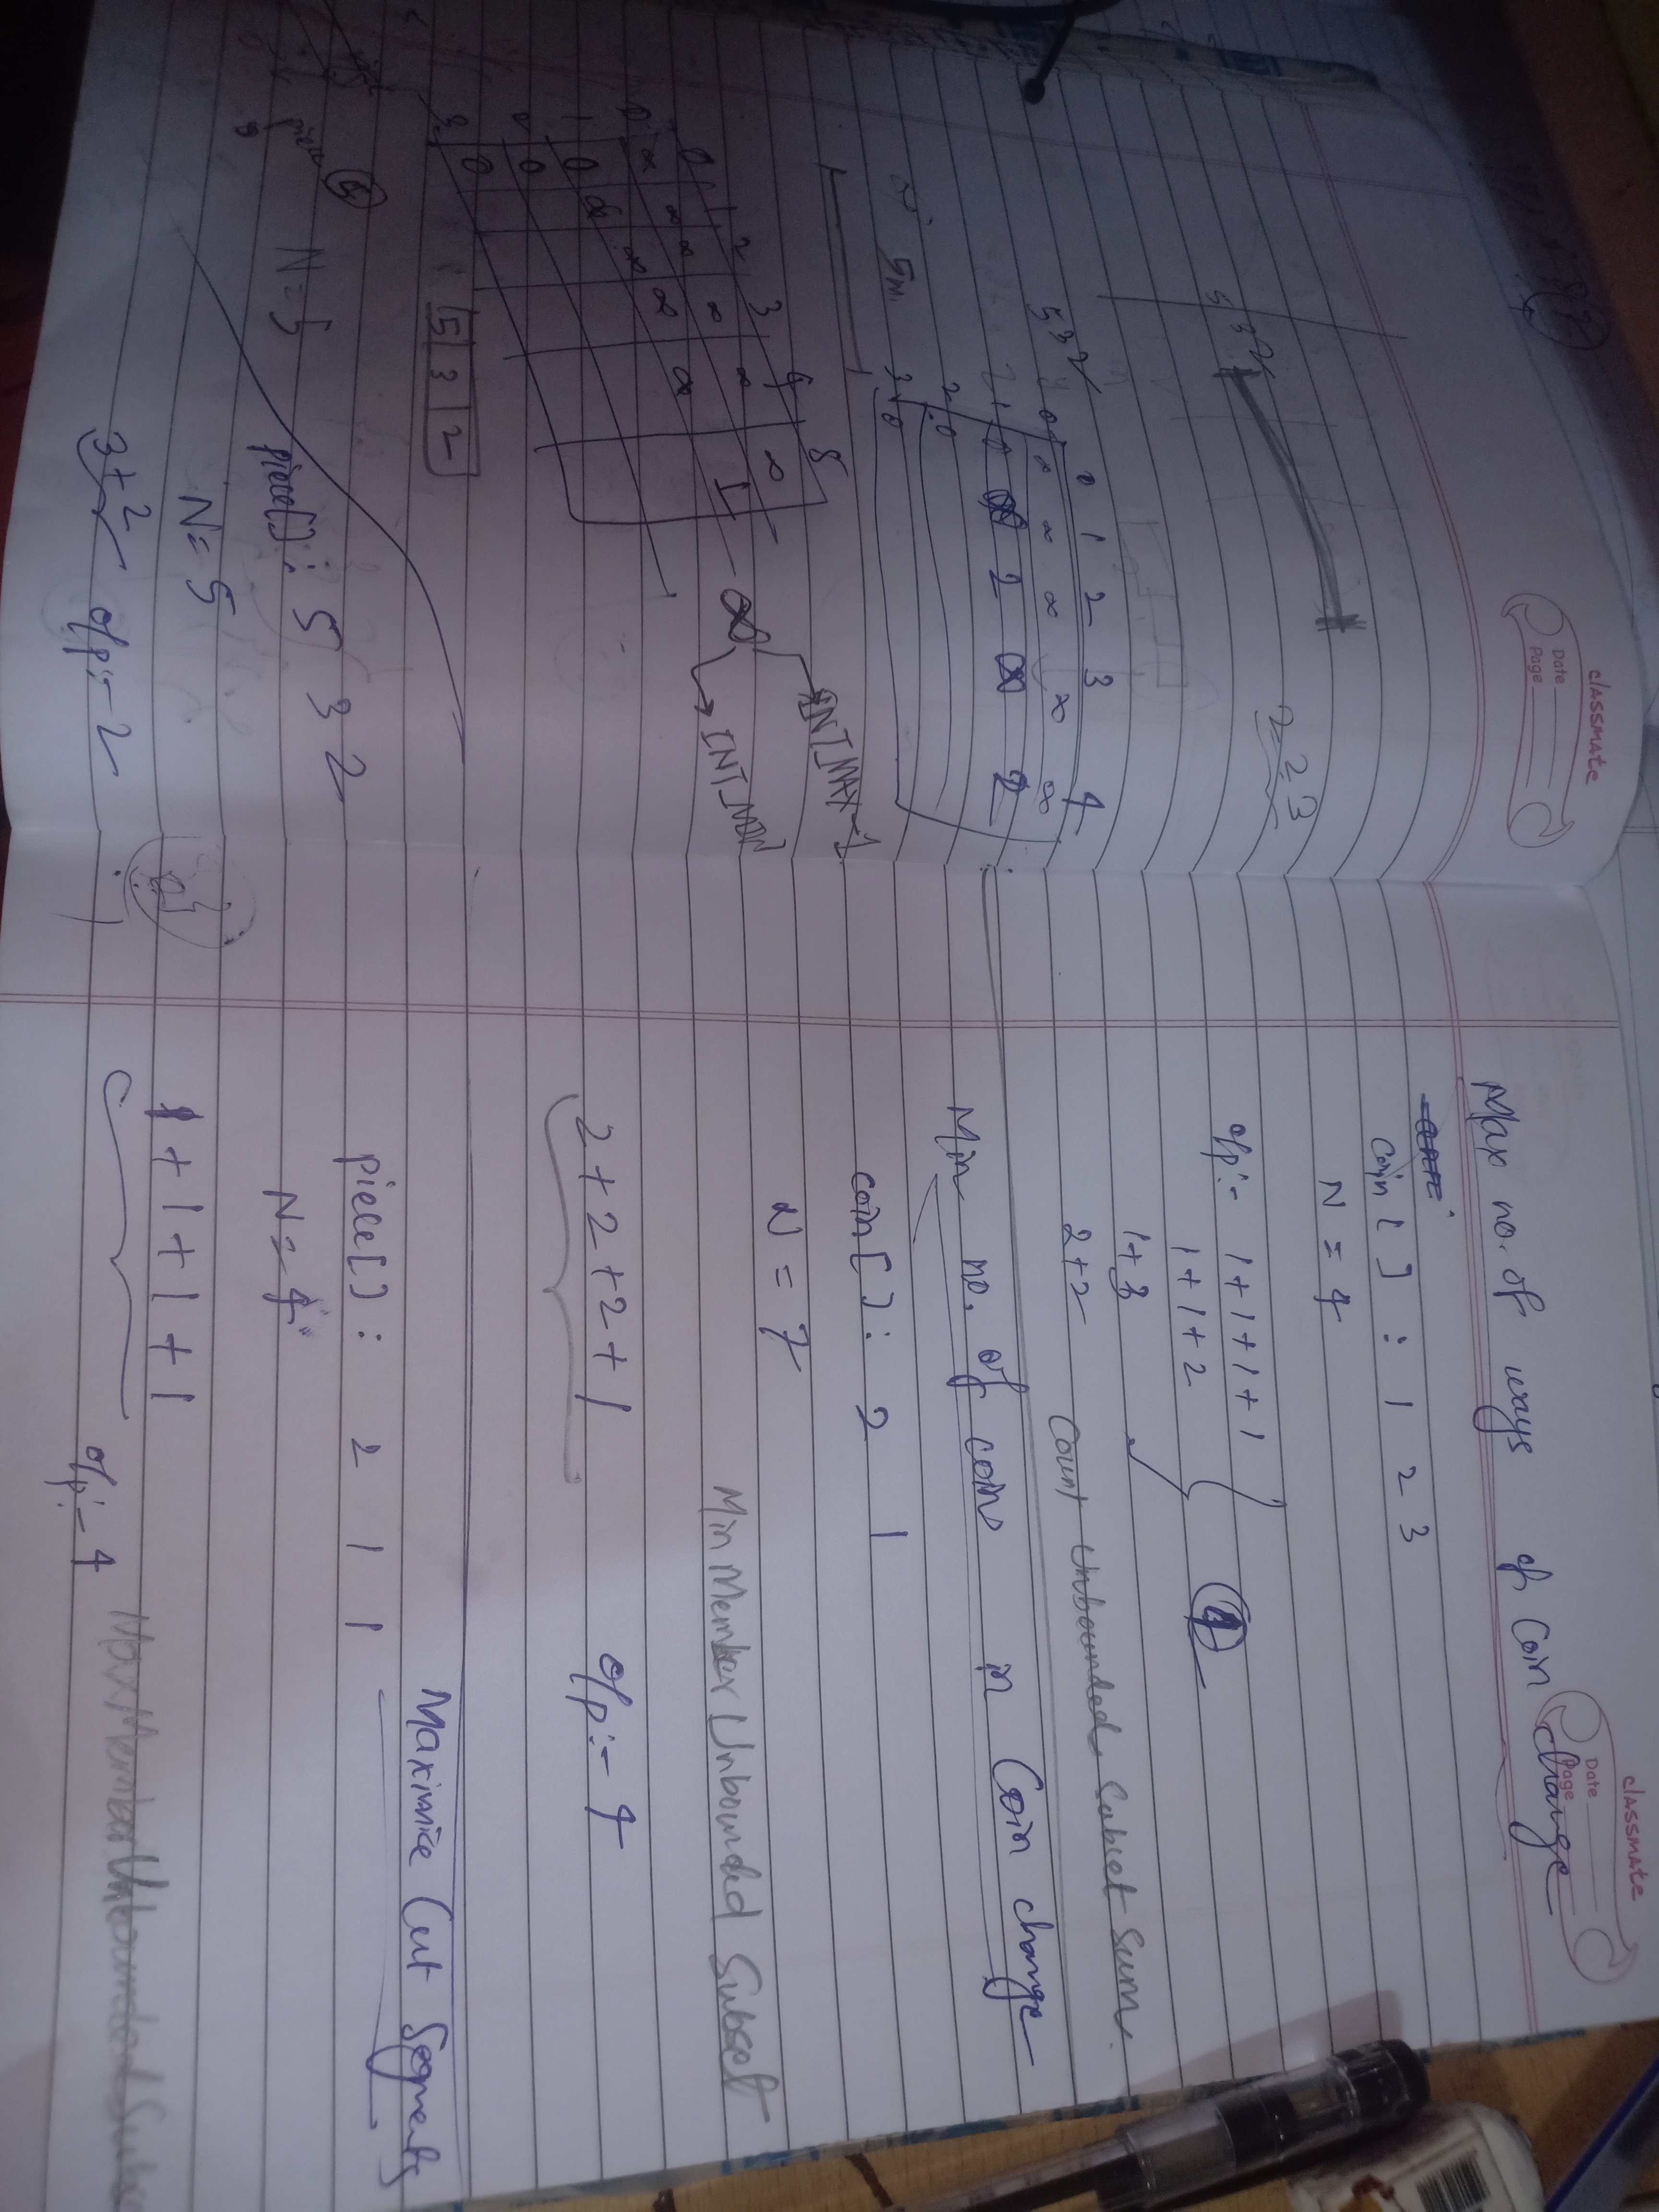 classmate
Date
Page
2 2 3
5 3 2
5 3 2
0 1 2 3 4
0 ∞ ∞ ∞ ∞ ∞
1 0 ∞ 2 ∞ 2
2 0
3 0
5m.
INT_MAX-1
∞
INT_MIN
0 1 2 3 4 5
0 ∞ ∞ ∞ ∞ ∞ ∞
1 0 ∞ ∞ ∞ ∞ 1
2 0
3 0
5 3 2
N=5
piece[] : 5 3 2
N= 5
3+2 o/p:- 2
classmate
Date
Page
Max no. of ways of Coin change
Coin [ ] : 1 2 3
N = 4
o/p:- 1+1+1+1
1+1+2
4
1+3
2+2
Count Unbounded Subset Sum.
Min no. of coins in Coin change
coin[ ] : 2 1
N = 7
Min Member Unbounded Subset
2+2+2+1 o/p:- 4
Maximize Cut Segments
piece[ ] : 2 1 1
N = 4
1+1+1+1
Max Member Unbounded Subs
o/p:- 4